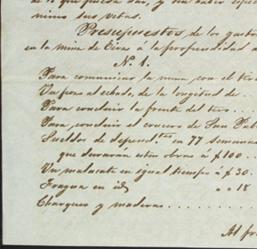 de lo que pueda dar, y sin haber
minos sus vetas.
Presupuestos de los gastos
en la mina de á la profundidad
N. 1.
Para comunicar la mina con el tiro
de la longitud de . .
Para concluir la frente del tiro . . .
Para concluir el crucero de San
Sueldos de depend.tes en 77 semanas
que duraran estas obras á $100 . . .
Un malacate en igual tiempo á $30.
Fragua en id " " 18
Charqueo y maderas . . . . . . . .
Al